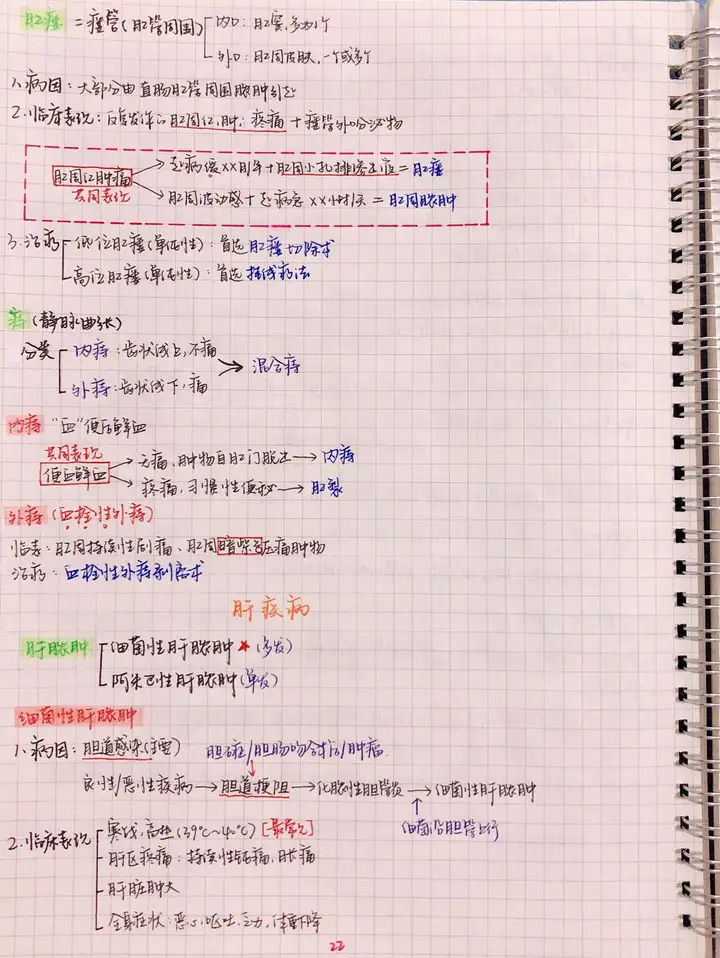 肛瘘 = 瘘管(肛管周围) 内口: 肛窦,多为1个
外口: 肛周皮肤,一个或多个
1.病因: 大部分由直肠肛管周围脓肿引起
2.临床表现: 反复发作的肛周红,肿,疼痛 + 瘘管外口分泌物
肛周红肿痛 → 起病缓××月/年+肛周小孔排液出液 = 肛瘘
共同表现 → 肛周波动感+起病急××小时/天 = 肛周脓肿
3.治疗 低位肛瘘(单纯性): 首选肛瘘切除术
高位肛瘘(单纯性): 首选挂线疗法
痔(静脉曲张)
分类 内痔: 齿状线上,不痛
外痔: 齿状线下,痛 → 混合痔
内痔 "血"便后鲜血
共同表现
便血鲜血 → 无痛,肿物自肛门脱出 → 内痔
→ 疼痛,习惯性便秘 → 肛裂
外痔 (血栓性外痔)
临表: 肛周持续性剧痛、肛周暗紫色压痛肿物
治疗: 血栓性外痔剥离术
肝疾病
肝脓肿 细菌性肝脓肿★(多发)
阿米巴性肝脓肿(单发)
细菌性肝脓肿
1.病因: 胆道感染(主要) 胆石症/胆肠吻合术后/肿瘤
良性/恶性疾病 → 胆道梗阻 → 化脓性胆管炎 → 细菌性肝脓肿
细菌沿胆管上行
2.临床表现 寒战,高热(39℃~40℃) [最常见]
肝区疼痛: 持续性钝痛,胀痛
肝脏肿大
全身症状: 恶心,呕吐,乏力,体重下降
22